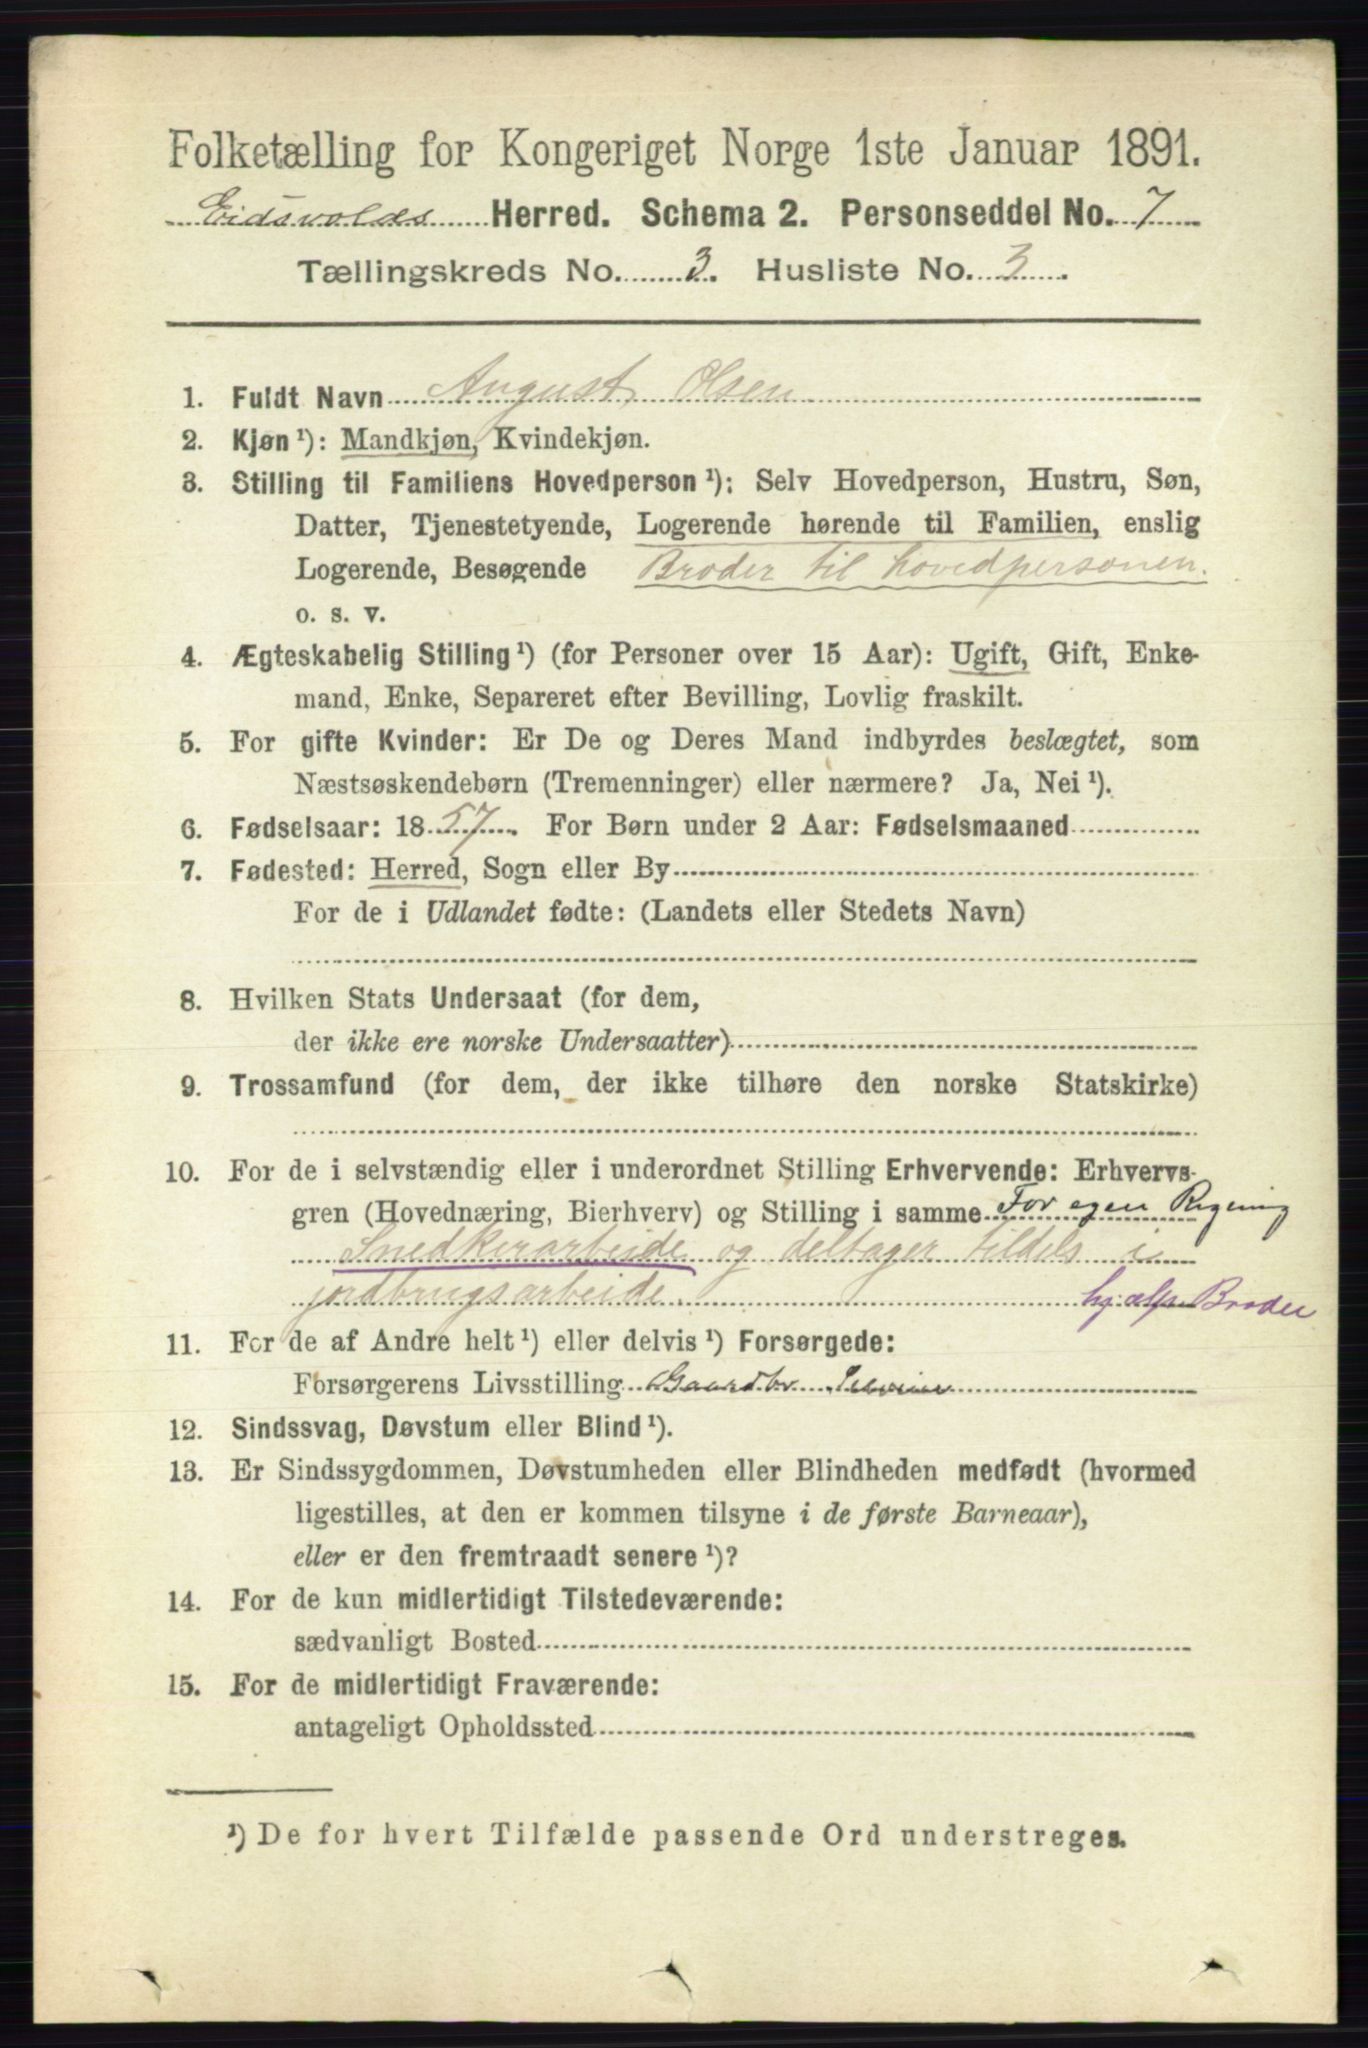 Folketælling for Kongeriget Norge 1ste Januar 1891.
Eidsvolds Herred. Schema 2. Personseddel No. 7
Tællingskreds No. 3. Husliste No. 3.
1. Fuldt Navn August Olsen
2. Kjøn ¹): Mandkjøn, Kvindekjøn.
3. Stilling til Familiens Hovedperson ¹): Selv Hovedperson, Hustru, Søn,
Datter, Tjenestetyende, Logerende hørende til Familien, enslig
Logerende, Besøgende Broder til hovedpersonen.
o. s. v.
4. Ægteskabelig Stilling ¹) (for Personer over 15 Aar): Ugift, Gift, Enke-
mand, Enke, Separeret efter Bevilling, Lovlig fraskilt.
5. For gifte Kvinder: Er De og Deres Mand indbyrdes beslægtet, som
Næstsøskendebørn (Tremenninger) eller nærmere? Ja, Nei ¹).
6. Fødselsaar: 1857. For Børn under 2 Aar: Fødselsmaaned
7. Fødested: Herred, Sogn eller By
For de i Udlandet fødte: (Landets eller Stedets Navn)
8. Hvilken Stats Undersaat (for dem,
der ikke ere norske Undersaatter)
9. Trossamfund (for dem, der ikke tilhøre den norske Statskirke)
10. For de i selvstændig eller i underordnet Stilling Erhvervende: Erhvervs-
gren (Hovednæring, Bierhverv) og Stilling i samme For egen Regning
Snedkerarbeide og deltager tildels i
jordbrugsarbeide. hjælp. Broder
11. For de af Andre helt ¹) eller delvis ¹) Forsørgede:
Forsørgerens Livsstilling Gaardbr
12. Sindssvag, Døvstum eller Blind ¹).
13. Er Sindssygdommen, Døvstumheden eller Blindheden medfødt (hvormed
ligestilles, at den er kommen tilsyne i de første Barneaar),
eller er den fremtraadt senere ¹)?
14. For de kun midlertidigt Tilstedeværende:
sædvanligt Bosted
15. For de midlertidigt Fraværende:
antageligt Opholdssted
¹) De for hvert Tilfælde passende Ord understreges.